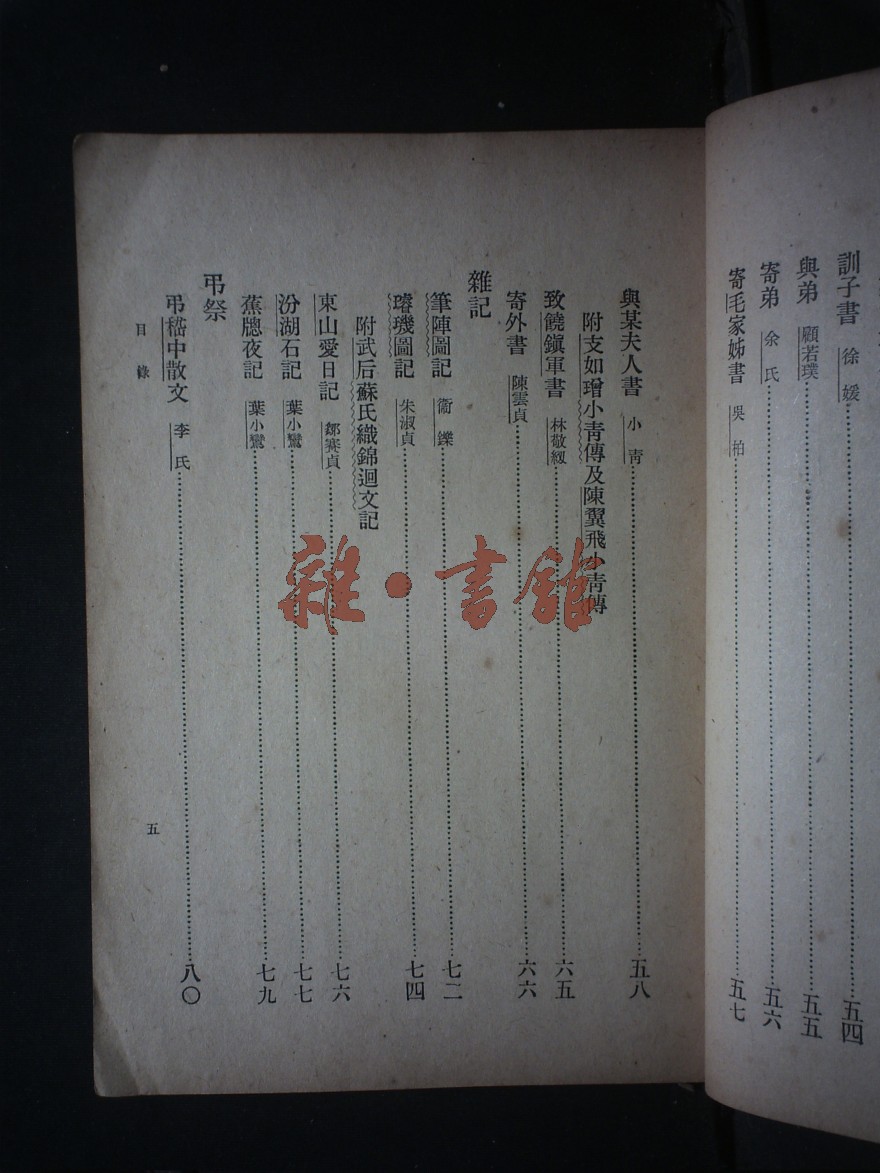 訓子書 徐媛 五四
與弟 顧若璞 五五
寄弟 余氏 五六
寄毛家姊書 吳柏 五七
與某夫人書 小青 五八
附支如璔小靑傳及陳翼飛小靑傳
致饒鎭軍書 林敬紉 六五
寄外書 陳雲貞 六六
雜記
筆陣圖記 衞鑠 七二
璿璣圖記 朱淑貞 七四
附武后蘇氏織錦迴文記
東山愛日記 鄒賽貞 七六
汾湖石記 葉小鸞 七七
蕉牕夜記 葉小鸞 七九
弔祭
弔嵇中散文 李氏 八〇
目錄
五
雜·書館